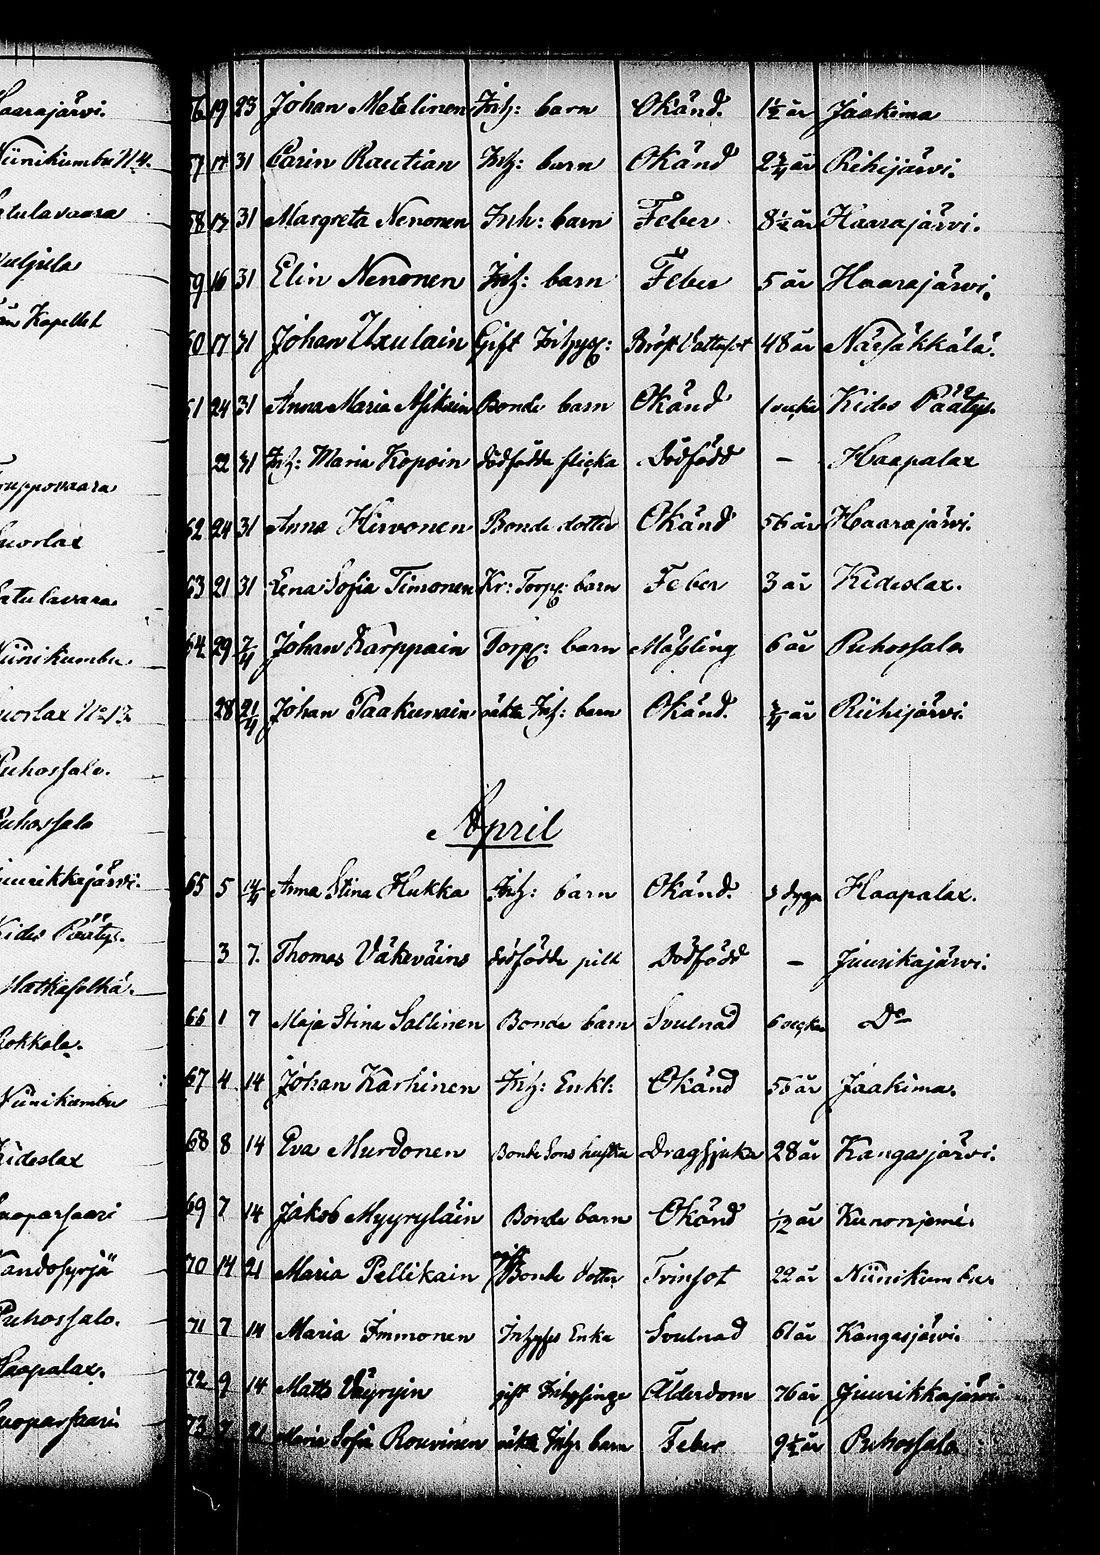 Haarajärvi.
Niinikumbu N4.
Satulavaara
Kapellet
Suorlax
Satulavaara
Niinikumbu
Suorlax No 13
Puhossalo.
Puhossalo
Juurikkajärvi.
Kides Päätys.
Matkaselkä.
Rokkala.
Niinikumbu
Kideslax
Puhossalo.
Haapalax.
56 19 23 Johan Matelinen Inh: barn Okänd. 1½ år Jaakima
57 17 31 Carin Rautian Inh: barn Okänd 2¾ år Riihijärvi.
58 17 31 Margreta Nenonen Inh: barn Feber 8½ år Haarajärvi.
59 16 31 Elin Nenonen Inh: barn Feber 5 år Haarajärvi.
60 17 31 Johan Uxulain Gift Inhys: Bröst Vattusot 48 år Näsäkkälä.
61 24 31 Anna Maria Asikain Bonde barn Okänd 1 vecka Kides Päätys.
22 31 Inh: Maria Kopoin dödfödda flicka Dödfödd – Haapalax
62 24 31 Anna Hirvonen Bonde dotter Okänd 56 år Haarajärvi.
63 21 31 Lena Sofia Timonen Kr: Torp: barn Feber 3 år Kideslax.
64 29 7/4 Johan Karppain Torp: barn Mässling 6 år Puhossalo
28 21/4 Johan Paakunain oäkta Inh: barn Okänd. ¾ år Riihijärvi.
April
65 5 14/4 Anna Stina Hukka Inh: barn Okänd. 3 dygn Haapalax.
3 7. Thomas Väkeväins dödfödde pilt Dödfödd – Juurikajärvi.
66 1 7 Maja Stina Sallinen Bonde barn Svulnad 6 veckor Do
67 4 14 Johan Karhinen Inh: Enkl: Okänd 56 år Jaakima.
68 8 14 Eva Murdonen Bonde Sons hustru Dragsjuka 28 år Kangasjärvi.
69 7 14 Jakob Myyryläin Bonde barn Okänd 1/12 år Kunonjemi.
70 14 21 Maria Pellikain gift Bonde dotter Tvinsot 22 år Niinikumbu
71 7 14 Maria Immonen Inhyses Enka Svulnad 61 år Kangasjärvi.
72 9 14 Matts Väyryin gift Inhysinge Ålderdom 76 år Juurikkajärvi
73 7 21 Maria Sofia Rouvinen oäkta Inh: barn Feber 9½ år Puhossalo